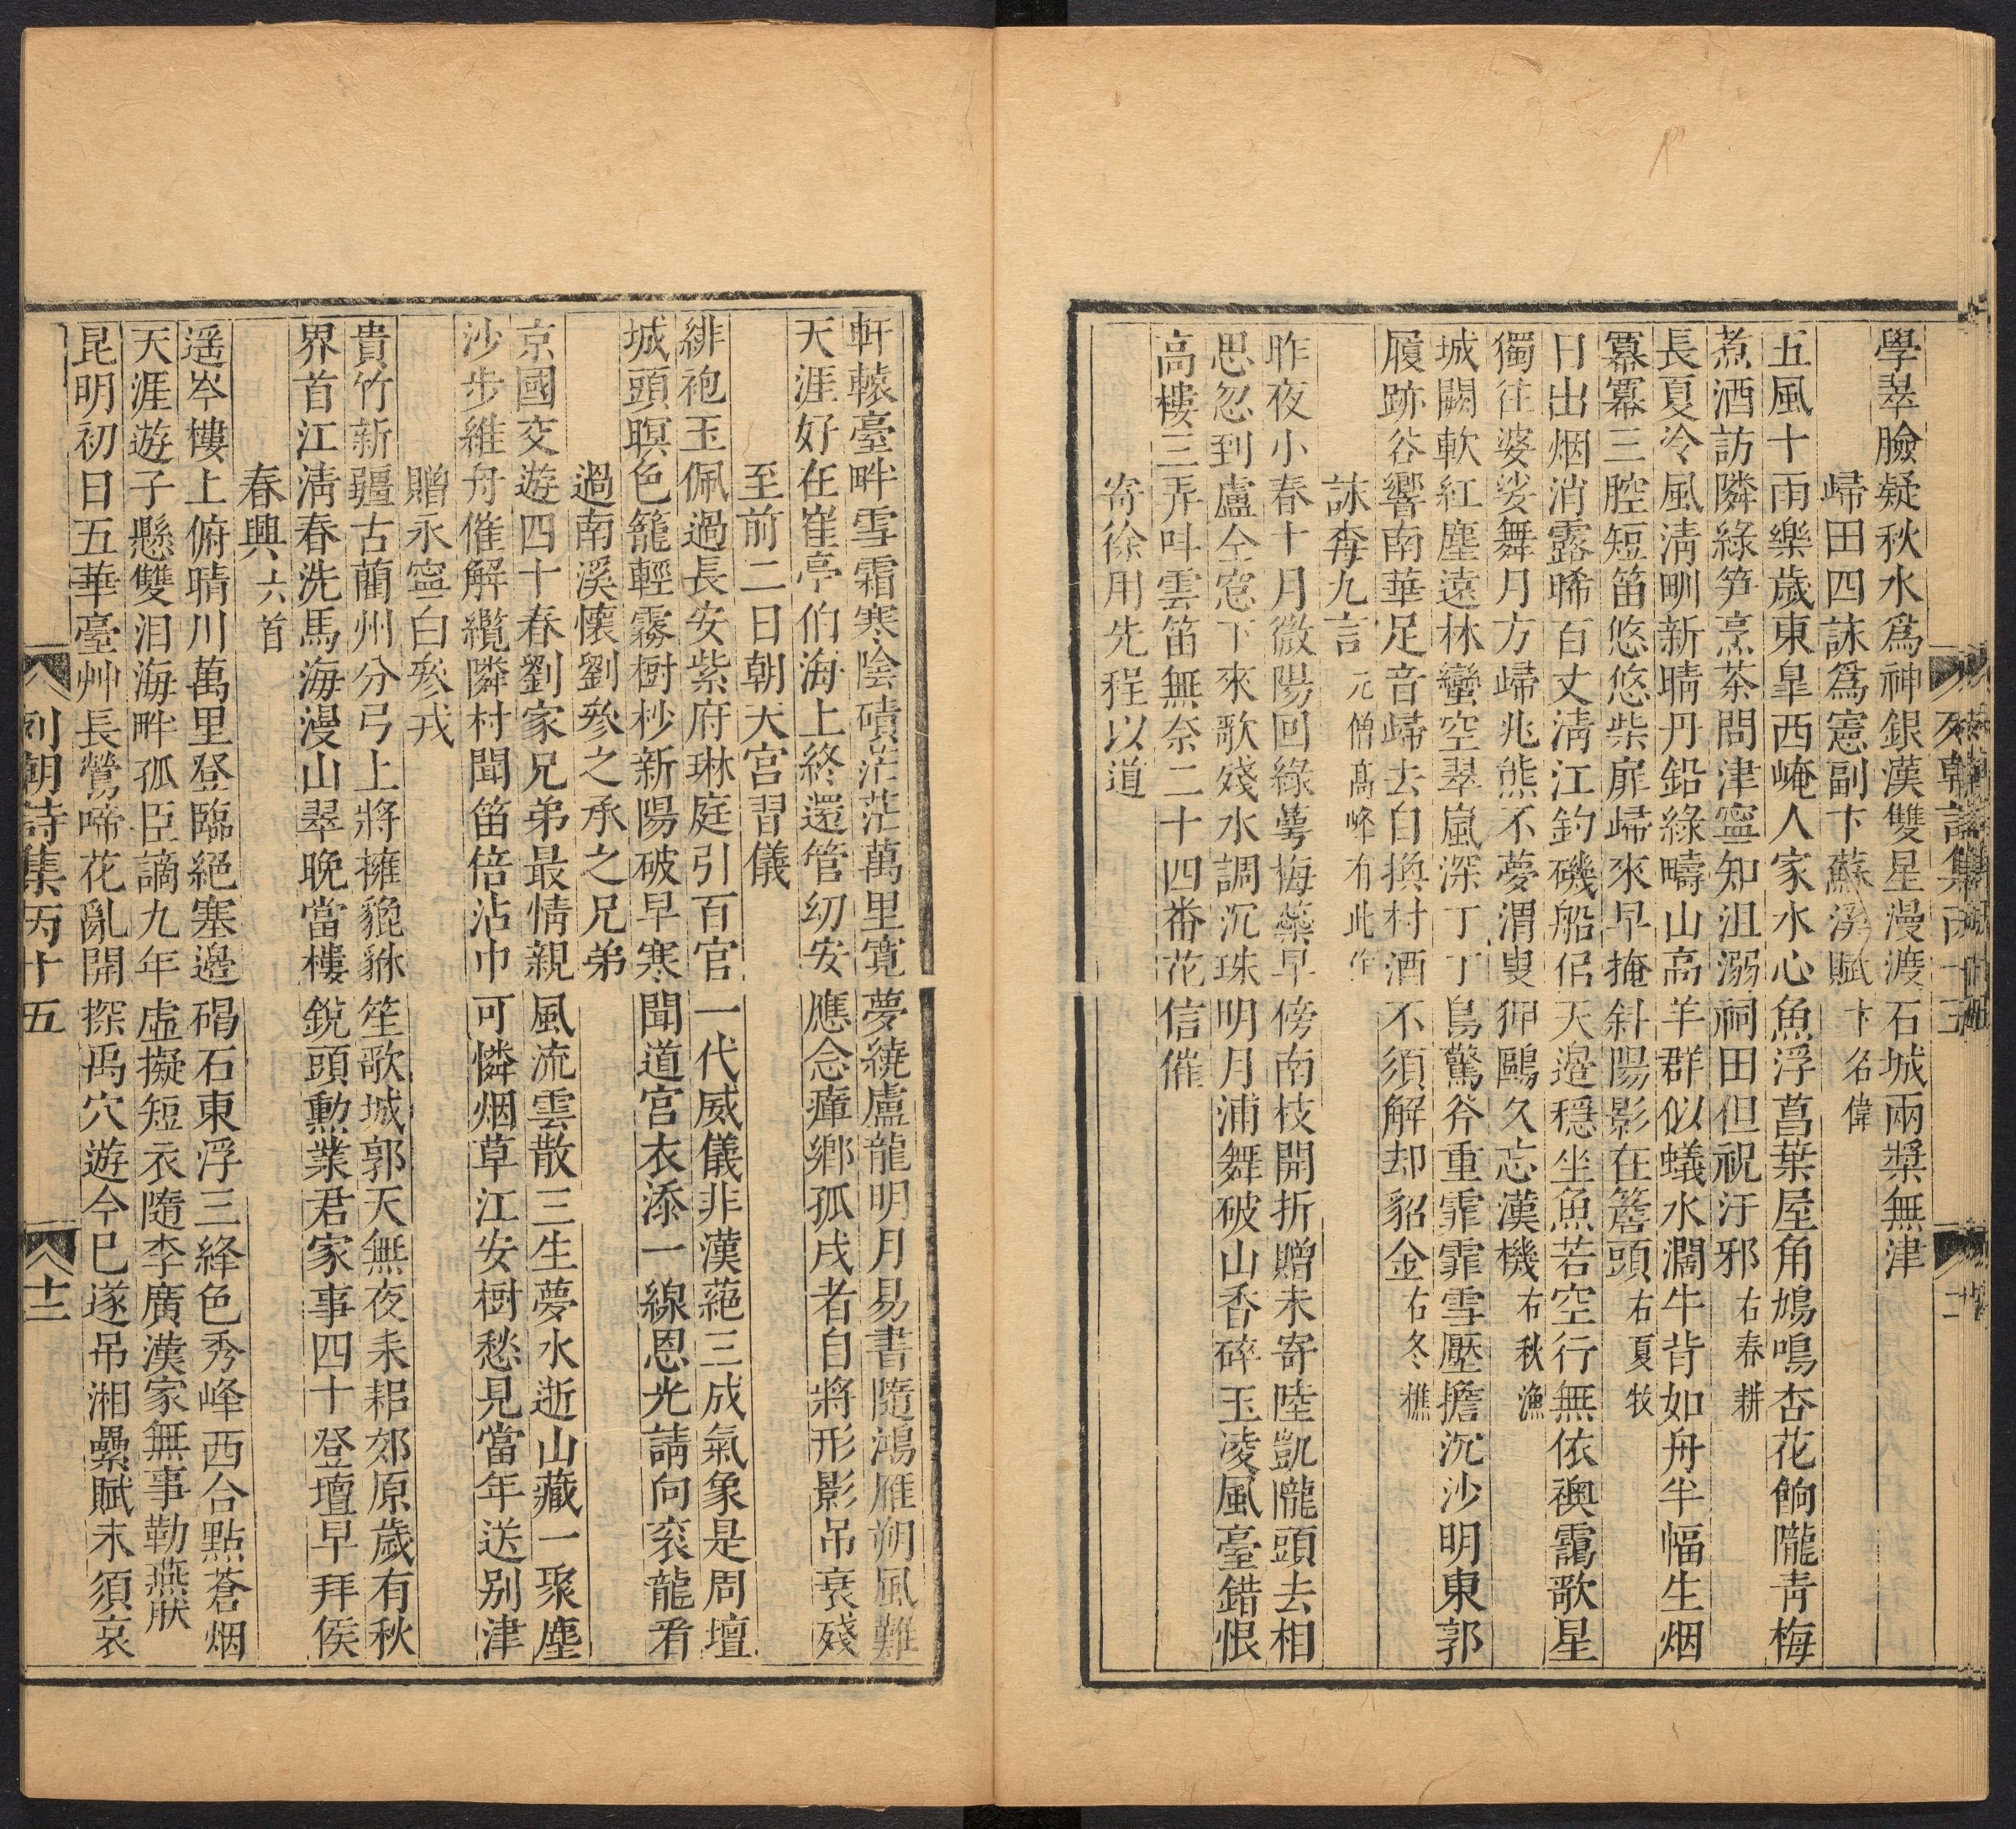 學翠臉疑秋水爲神銀漢雙星漫渡石城兩槳無津
歸田四詠爲憲副卞蘇溪賦卞名偉
五風十雨樂歲東皐西崦人家水心魚浮菖葉屋角鳩鳴杏花餉隴靑梅
煮酒訪隣綠笋烹茶問津寧知沮溺祠田但祝汙邪右春耕
長夏冷風淸畎新晴丹鉛綠疇山高羊群似蟻水濶牛背如舟半幅生烟
羃羃三腔短笛悠悠柴扉歸來早掩斜陽影在簷頭右夏牧
日出烟消露晞百丈淸江釣磯船侶天邉穩坐魚若空行無依襖靄歌星
獨往婆娑舞月方歸兆熊不夢渭叟狎鷗久忘漢機右秋漁
城闕軟紅塵遠林巒空翠嵐深丁丁鳥驚斧重霏霏雪壓擔沉沙明東郭
履跡谷響南華足音歸去自換村酒不須解却貂金右冬樵
詠梅九言元僧高峰有此作
昨夜小春十月微陽回綠萼梅蘂早傍南枝開折贈未寄陸凱隴頭去相
思忽到盧仝窓下來歌殘水調沉珠明月浦舞破山香碎玉凌風臺錯恨
高樓三弄呌雲笛無奈二十四番花信催
寄徐用先程以道
軒轅臺畔雪霜寒陰磧茫茫萬里寛夢繞盧龍明月易書隨鴻雁朔風難
天涯好在崔亭伯海上終還管幼安應念瘴鄉孤戍者自將形影吊衰殘
至前二日朝天宮習儀
緋袍玉佩過長安紫府琳庭引百官一代威儀非漢蕝三成氣象是周壇
城頭暝色籠輕霧樹杪新陽破早寒聞道宮衣添一線恩光請向衮龍看
過南溪懷劉參之承之兄弟
京國交遊四十春劉家兄弟最情親風流雲散三生夢水逝山藏一聚塵
沙步維舟催解纜隣村聞笛倍沾巾可憐烟草江安樹愁見當年送別津
贈永寧白參戎
貴竹新疆古藺州分弓上將擁貔貅笙歌城郭天無夜耒耜郊原歲有秋
界首江淸春洗馬海漫山翠晚當樓銳頭勲業君家事四十登壇早拜侯
春興六首
遥岑樓上俯晴川萬里登臨絕塞邉碣石東浮三絳色秀峰西合點蒼烟
天涯遊子懸雙泪海畔孤臣謫九年虛擬短衣隨李廣漢家無事勒燕然
昆明初日五華臺艸長鶯啼花亂開探禹穴遊今已遂吊湘纍賦未須哀
列朝詩集丙十五
十三